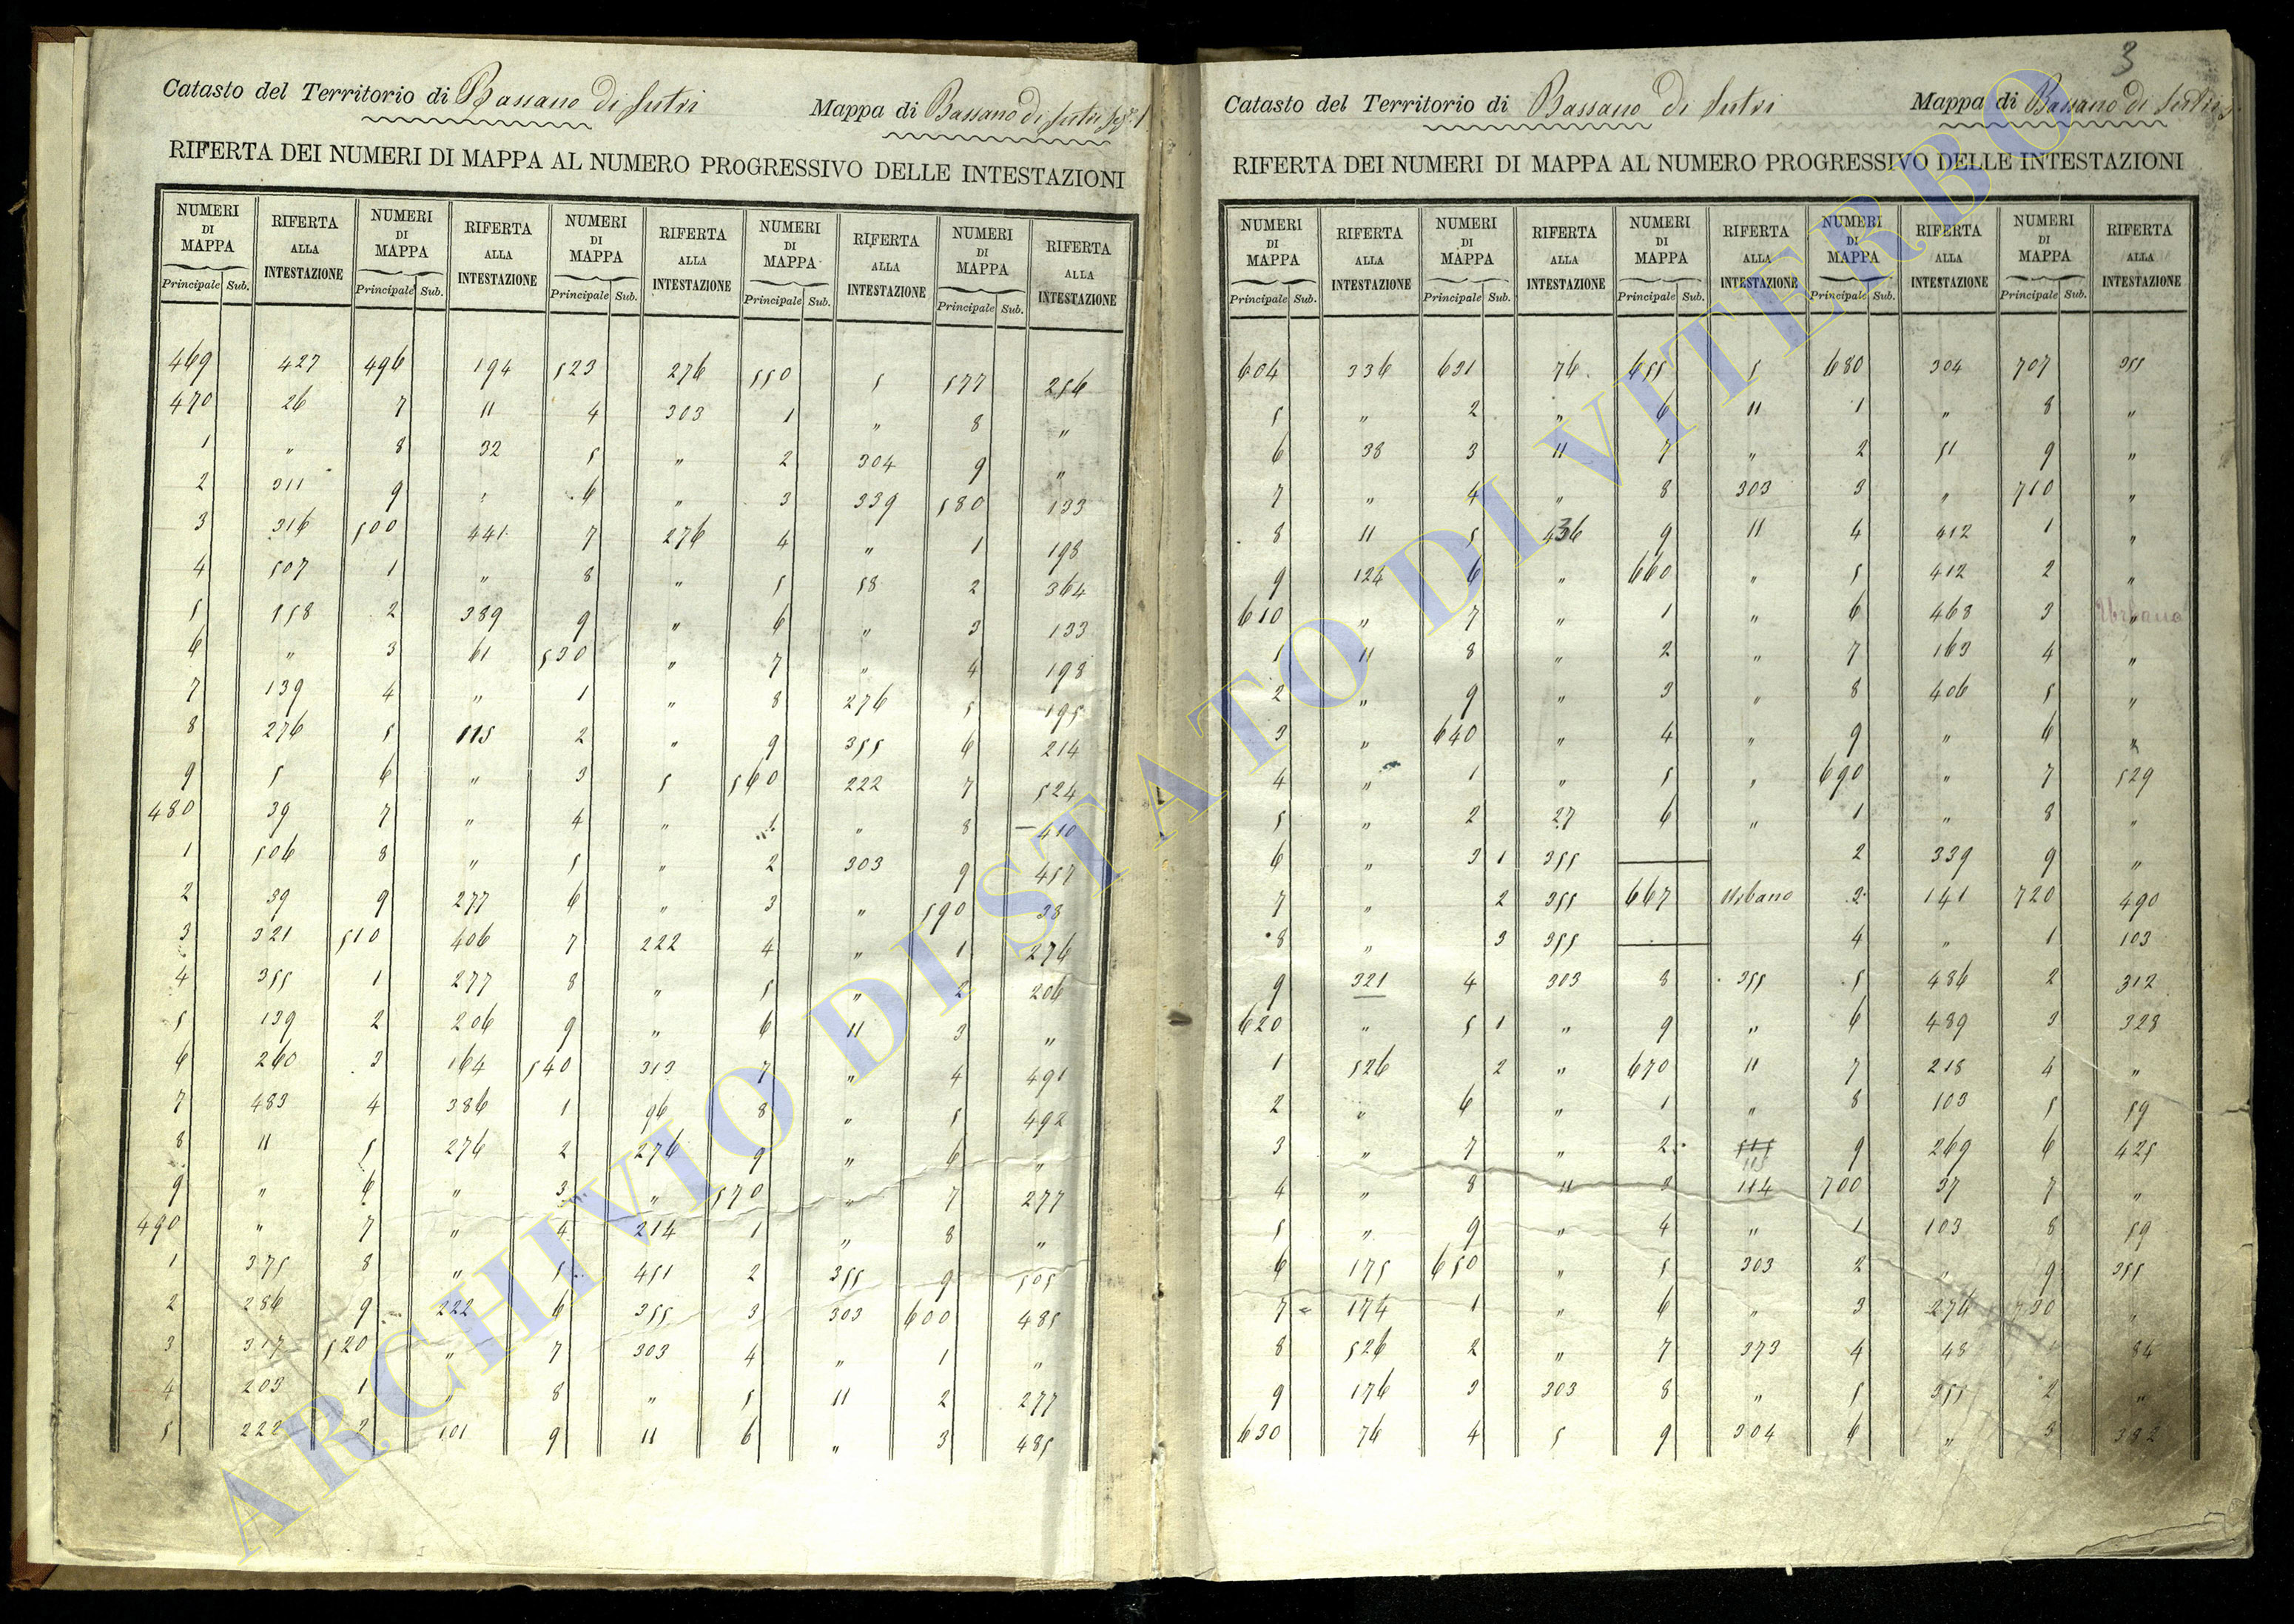 3
Catasto del Territorio di Bassano di Sutri Mappa di Bassano di Sutri Sez. 1
RIFERTA DEI NUMERI DI MAPPA AL NUMERO PROGRESSIVO DELLE INTESTAZIONI
NUMERI DI MAPPA RIFERTA ALLA INTESTAZIONE NUMERI DI MAPPA RIFERTA ALLA INTESTAZIONE NUMERI DI MAPPA RIFERTA ALLA INTESTAZIONE NUMERI DI MAPPA RIFERTA ALLA INTESTAZIONE NUMERI DI MAPPA RIFERTA ALLA INTESTAZIONE
Principale Sub. Principale Sub. Principale Sub. Principale Sub. Principale Sub.
469 427 496 194 523 276 550 5 577 256
470 26 7 11 4 303 1 " 8 "
1 " 8 32 5 " 2 304 9 "
2 311 9 " 6 " 3 339 580 133
3 316 500 441 7 276 4 " 1 198
4 507 1 " 8 " 5 58 2 364
5 158 2 389 9 " 6 " 3 133
6 " 3 61 530 " 7 " 4 198
7 139 4 " 1 " 8 276 5 195
8 276 5 115 2 " 9 355 6 214
9 5 6 " 3 5 560 222 7 524
480 39 7 " 4 " 1 " 8 410
1 506 8 " 5 " 2 303 9 457
2 39 9 277 6 " 3 " 590 38
3 321 510 406 7 222 4 " 1 276
4 355 1 277 8 " 5 " 2 206
5 139 2 206 9 " 6 11 3 "
6 260 3 164 540 313 7 " 4 491
7 483 4 386 1 96 8 " 5 492
8 11 5 276 2 276 9 " 6 "
9 " 6 " 3 " 570 " 7 277
490 " 7 " 4 214 1 " 8 "
1 375 8 " 5 451 2 355 9 505
2 286 9 222 6 355 3 303 600 485
3 317 520 " 7 303 4 " 1 "
4 203 1 " 8 " 5 11 2 277
5 222 2 101 9 11 6 " 3 485
Catasto del Territorio di Bassano di Sutri Mappa di Bassano di Sutri
RIFERTA DEI NUMERI DI MAPPA AL NUMERO PROGRESSIVO DELLE INTESTAZIONI
NUMERI DI MAPPA RIFERTA ALLA INTESTAZIONE NUMERI DI MAPPA RIFERTA ALLA INTESTAZIONE NUMERI DI MAPPA RIFERTA ALLA INTESTAZIONE NUMERI DI MAPPA RIFERTA ALLA INTESTAZIONE NUMERI DI MAPPA RIFERTA ALLA INTESTAZIONE
Principale Sub. Principale Sub. Principale Sub. Principale Sub. Principale Sub.
604 336 631 76 655 5 680 304 707 355
5 " 2 " 6 11 1 " 8 "
6 38 3 11 7 " 2 51 9 "
7 " 4 " 8 303 3 " 710 "
8 11 5 436 9 11 4 412 1 "
9 124 6 " 660 " 5 412 2 "
610 " 7 " 1 " 6 468 3 Urbano
1 11 8 " 2 " 7 163 4 "
2 " 9 " 3 " 8 406 5 "
3 " 640 " 4 " 9 " 6 "
4 " 1 " 5 " 690 " 7 529
5 " 2 27 6 " 1 " 8 "
6 " 3 1 355 2 339 9 "
7 " 2 355 667 Urbano 3 141 720 490
8 " 3 355 4 " 1 103
9 321 4 303 8 355 5 486 2 312
620 " 5 1 " 9 " 6 489 3 328
1 526 2 " 670 11 7 218 4 "
2 " 6 " 1 " 8 103 5 59
3 " 7 " 2 115 9 269 6 425
4 " 8 11 3 114 700 37 7 "
5 " 9 " 4 " 1 103 8 59
6 175 650 " 5 303 2 " 9 355
7 174 1 " 6 " 3 276 730 "
8 526 2 " 7 373 4 48 1 84
9 176 3 303 8 " 5 355 2 "
630 76 4 5 9 304 6 " 3 382
ARCHIVIO DI STATO DI VITERBO